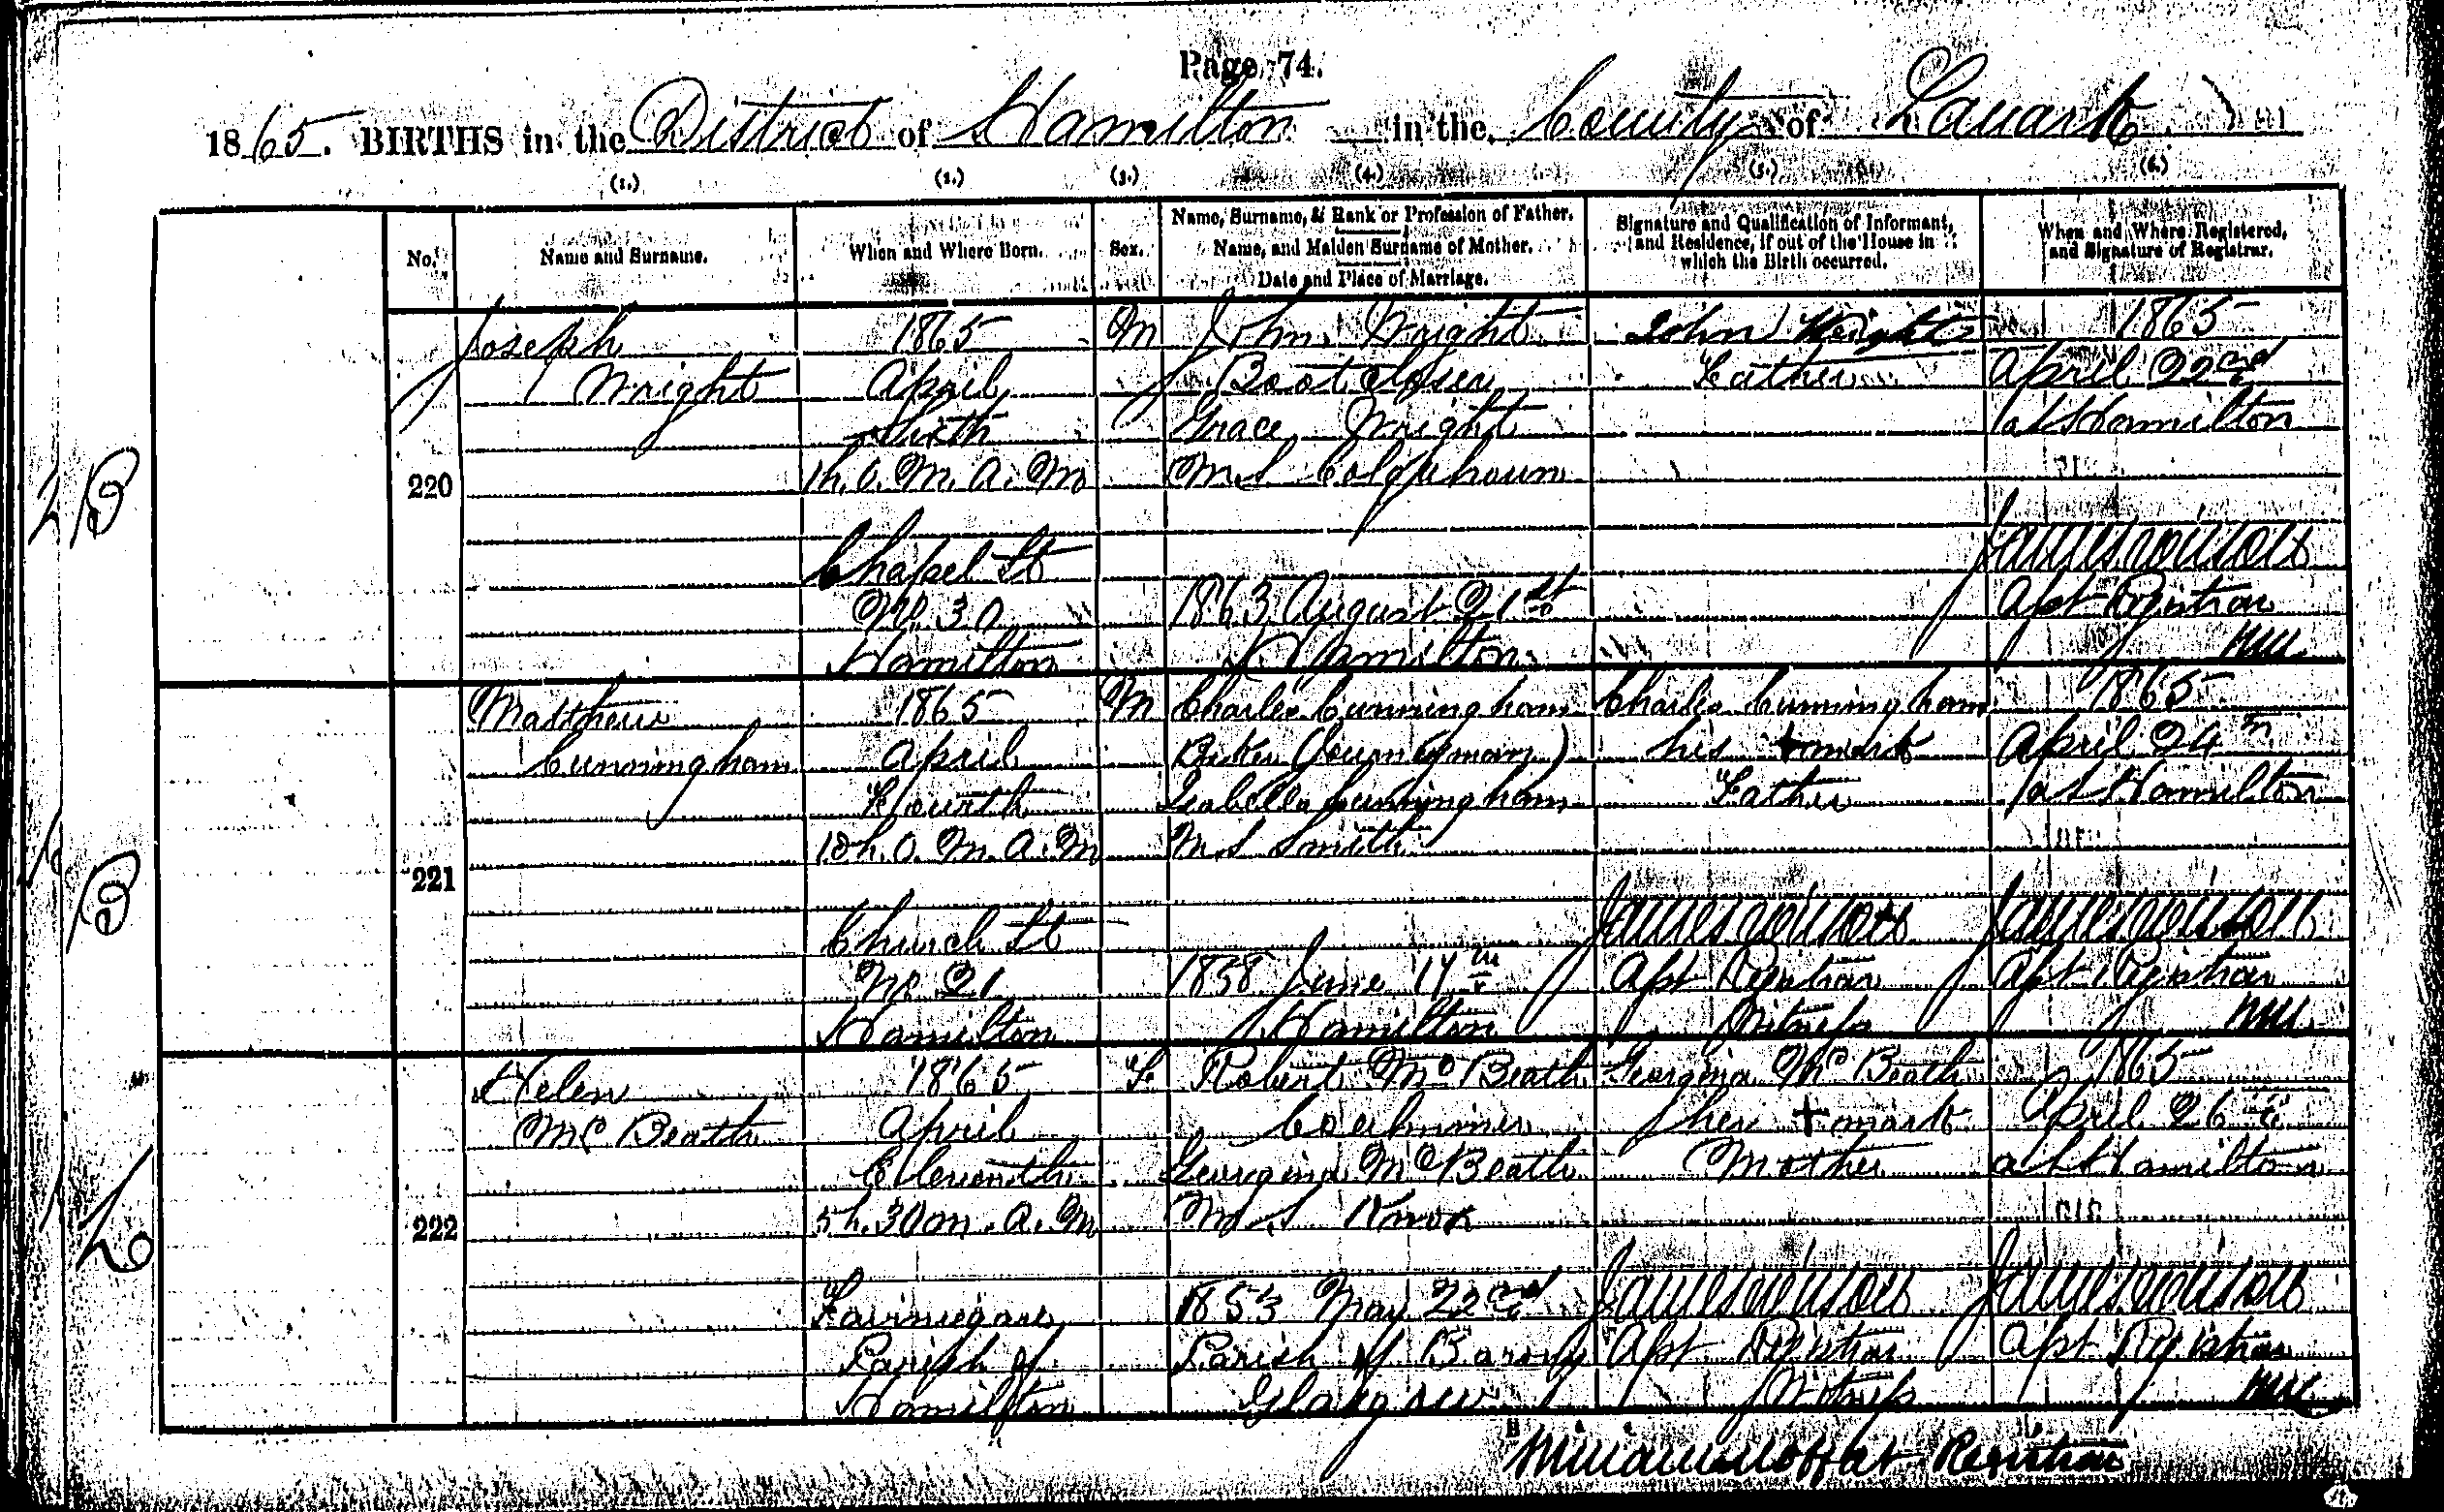 Page 74.
1865. BIRTHS in the District of Hamilton in the County of Lanark
(1.) (2.) (3.) (4.) (5.) (6.)
No. Name and Surname. When and Where Born. Sex. Name, Surname, & Rank or Profession of Father. Name, and Maiden Surname of Mother. Date and Place of Marriage. Signature and Qualification of Informant, and Residence, if out of the House in which the Birth occurred. When and Where Registered, and Signature of Registrar.
2 B
220
Joseph
Wright
1865
April
Sixth
1h. 0. M. A. M
Chapel St
No. 30
Hamilton
M
John Wright
Boot closer
Grace Wright
M.S Colquhoun
1863 August 21st
Hamilton
John Wright
Father
1865
April 22nd
at Hamilton
Asst Registrar
B
221
Matthew
Cunningham
1865
April
Fourth
10h. 0. M. A. M
Church St
No 21
Hamilton
M
Charles Cunningham
Baker (Journeyman)
Isabella Cunningham
M.S Smith
1858 June 11th
Hamilton
Charles Cunningham
his + mark
Father
Asst Registrar
Witness
1865
April 24th
at Hamilton
Asst Registrar
222
Helen
Mc Beath
1865
April
Eleventh
5h. 30m. A. M
Parish of
Hamilton
F
Robert Mc Beath
Coalminer
Georgina McBeath
M S Knox
1853 May 22nd
Parish of Barony
Glasgow
Georgina Mc Beath
her + mark
Mother
Asst Registrar
Witness
1865
April 26th
at Hamilton
Asst Registrar
William Moffat Registrar